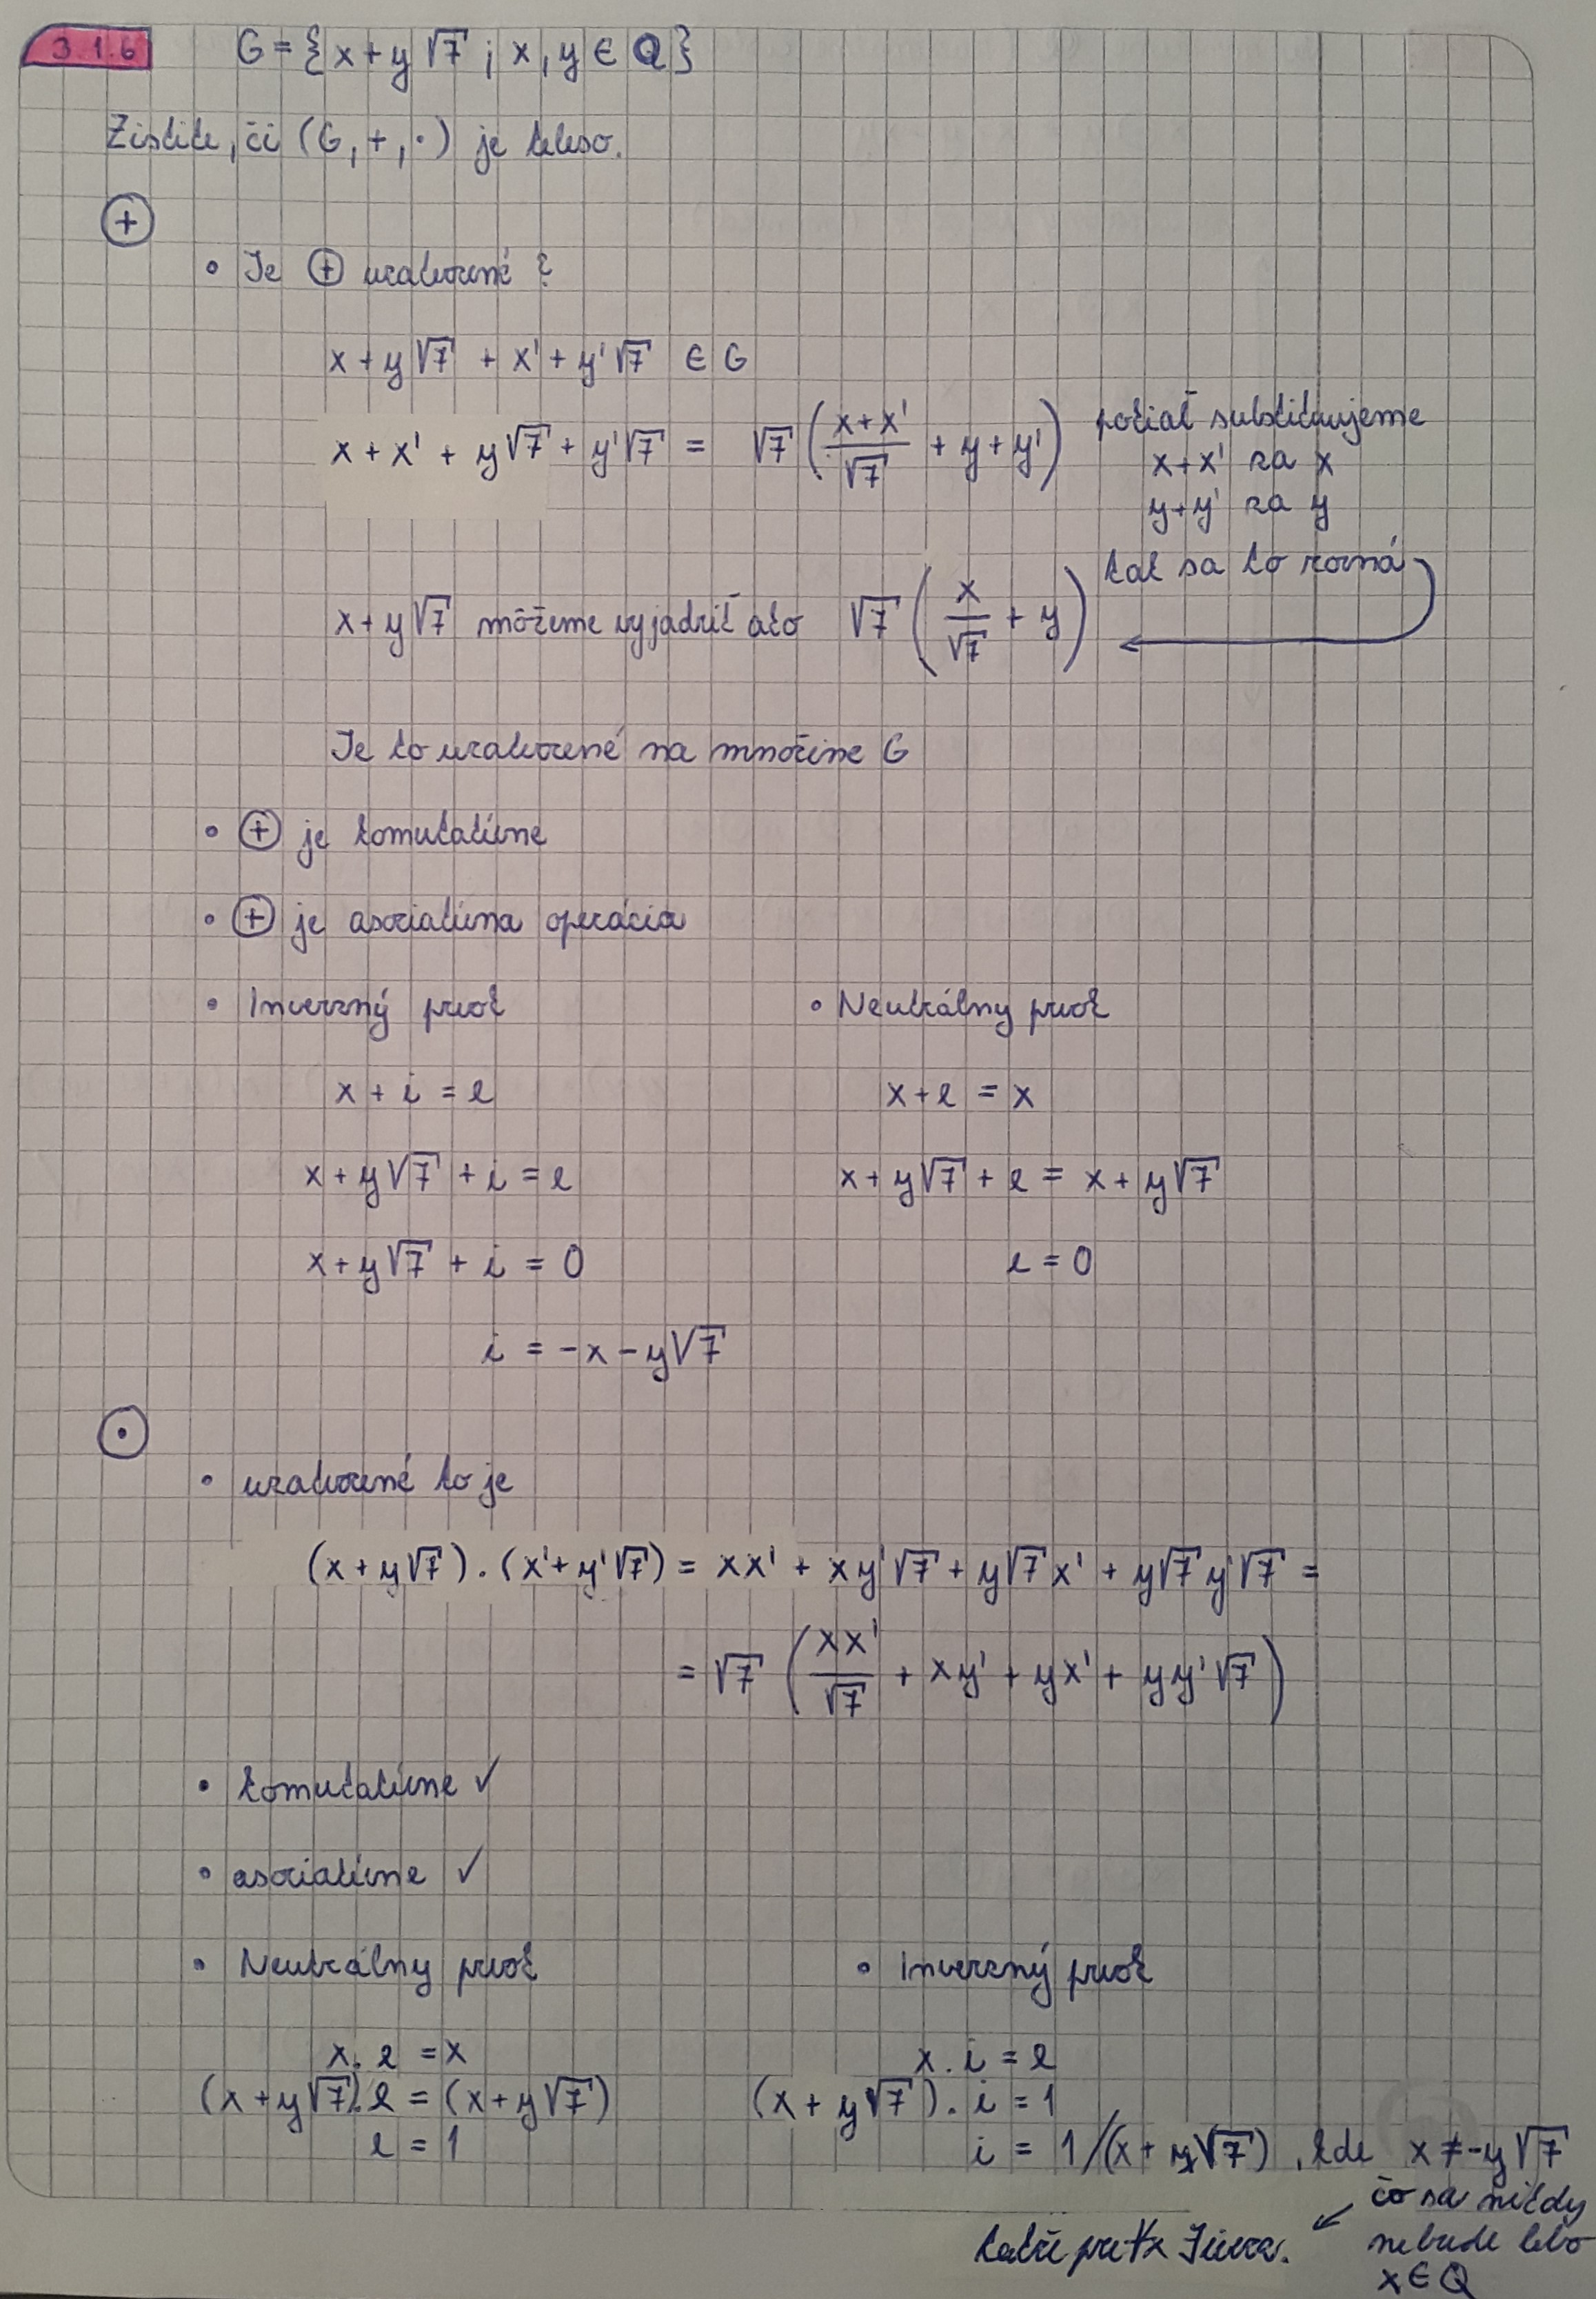 3.1.6 G = {x + y√7 ; x, y ∈ Q}
Zistite, či (G, +, ·) je teleso.
⊕
• Je ⊕ uzatvorené ?
x + y√7 + x' + y'√7 ∈ G
x + x' + y√7 + y'√7 = √7 ( (x+x')/√7 + y + y' ) pokiaľ substituujeme
x+x' za x
y+y' za y
tak sa to rovná
x + y√7 môžeme vyjadriť ako √7 ( x/√7 + y )
Je to uzatvorené na množine G
• ⊕ je komutatívne
• ⊕ je asociatívna operácia
• Inverzný prvok • Neutrálny prvok
x + i = e x + e = x
x + y√7 + i = e x + y√7 + e = x + y√7
x + y√7 + i = 0 e = 0
i = -x - y√7
⊙
• uzatvorené to je
(x + y√7) . (x' + y'√7) = xx' + xy'√7 + y√7x' + y√7y'√7 =
= √7 ( xx'/√7 + xy' + yx' + yy'√7 )
• komutatívne ✓
• asociatívne ✓
• Neutrálny prvok • Inverzný prvok
x. e = x x . i = e
(x + y√7).e = (x + y√7) (x + y√7). i = 1
e = 1 i = 1/(x + y√7), kde x ≠ -y√7
čo sa nikdy
nebude lebo
x ∈ Q
takže pre ∀x ∃ inverz.